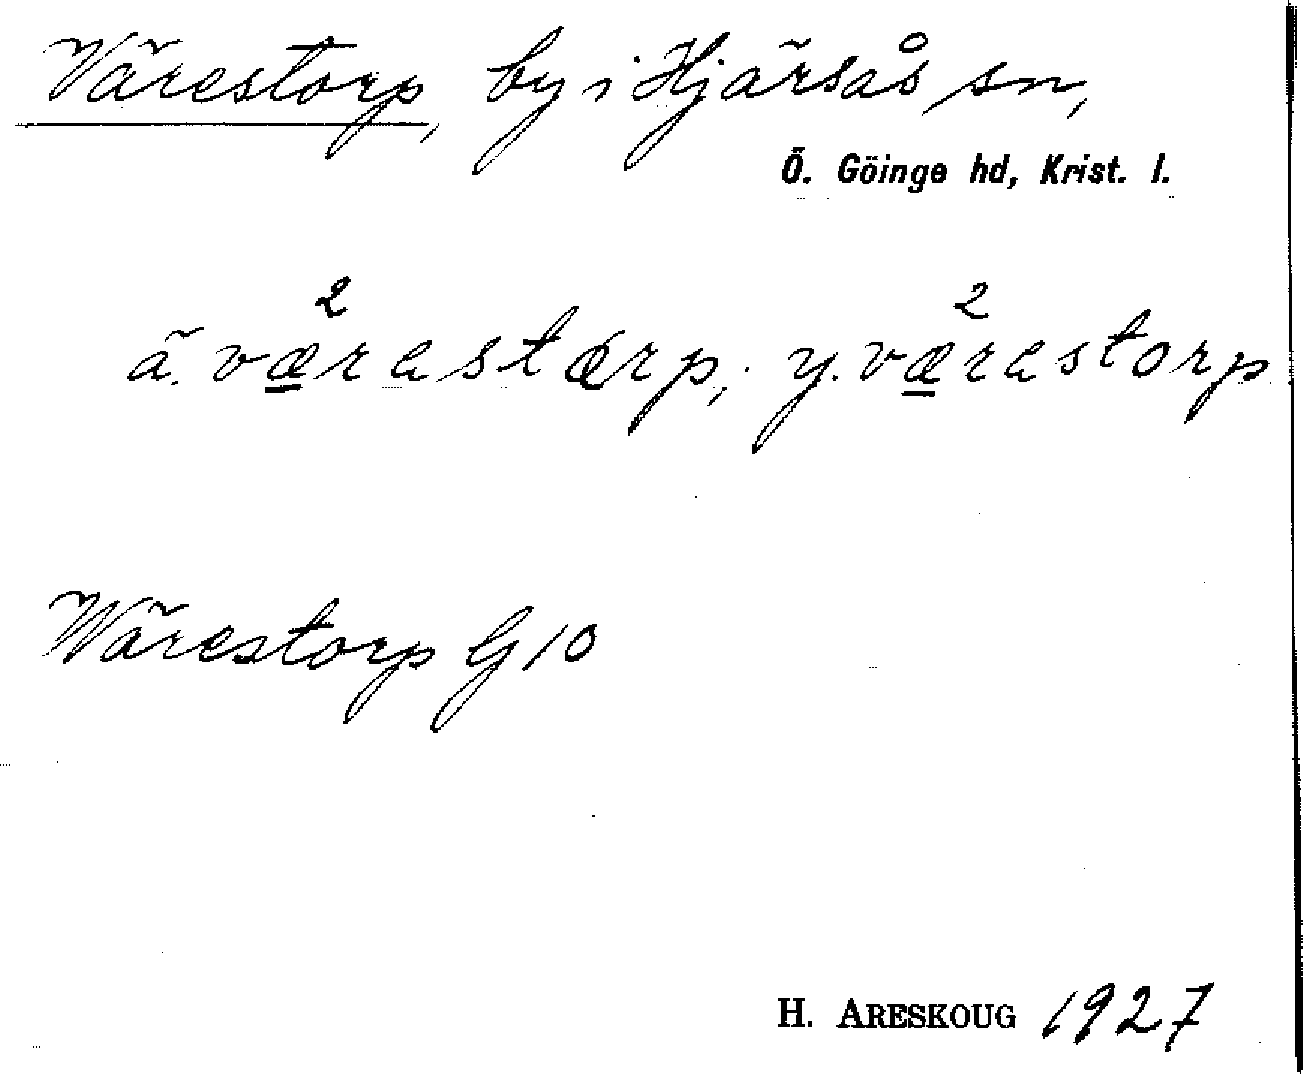 Värestorp, by i Hjärsås sn,
Ö. Göinge hd, Krist. l.
ä. væ²rastɑrp; y. væ²rastorp
Wärestorp G 10
H. ARESKOUG 1927